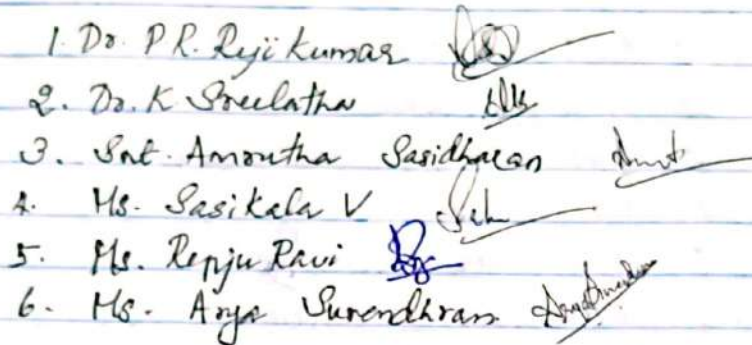 1. Dr. P R. Reji Kumar
2. Dr. K Sreelatha
3. Smt. Amrutha Sasidharan
4. Ms. Sasikala V
5. Ms. Renju Ravi
6. Ms. Arya Surendhran